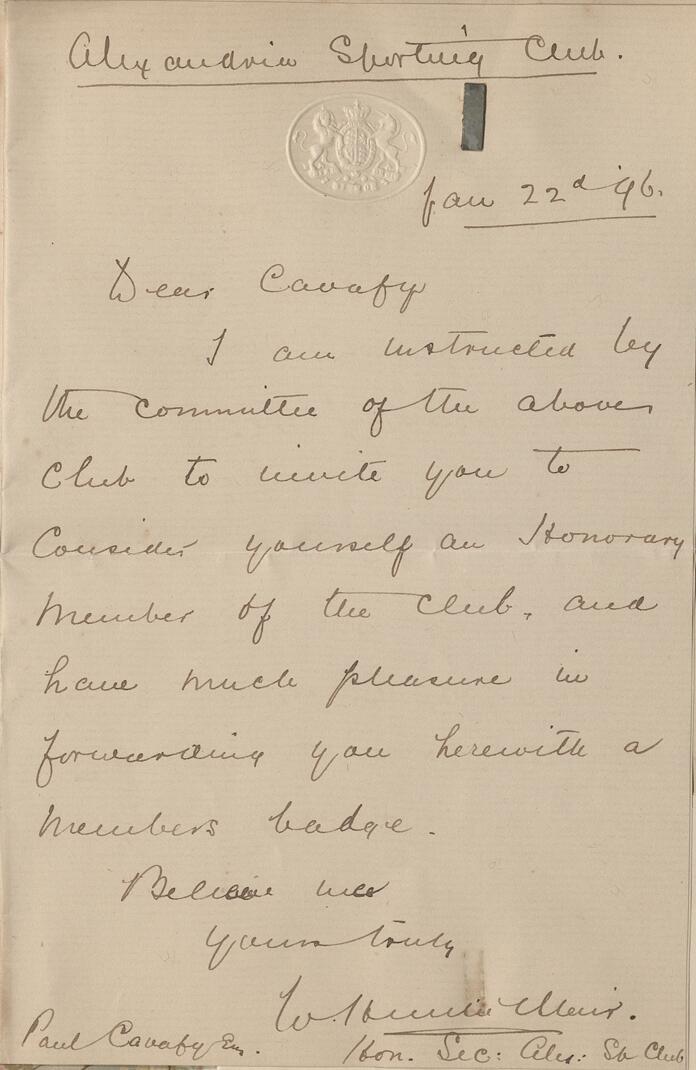 Alexandria Sporting Club.
Jan 22d '96.
Dear Cavafy
I am instructed by
the committee of the above
Club to invite you to
Consider yourself an Honorary
Member of the Club, and
have much pleasure in
forwarding you herewith a
Members badge.
Believe me
Yours truly
W. Hunter Muir.
Hon. Sec: Alex: Sp Club
Paul Cavafy Esq.